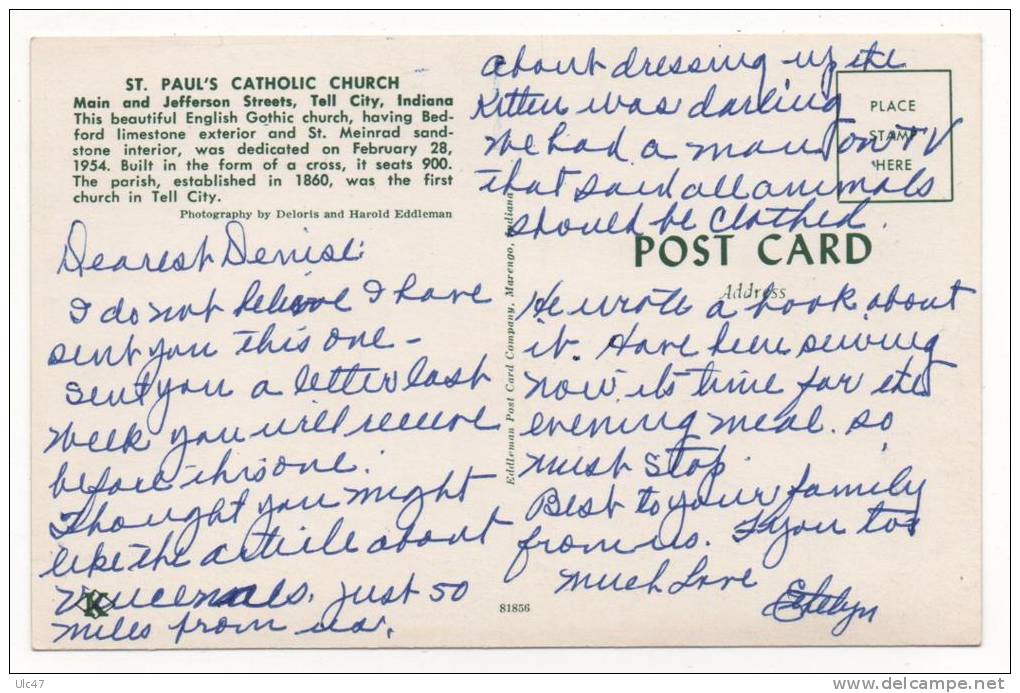 ST. PAUL'S CATHOLIC CHURCH
Main and Jefferson Streets, Tell City, Indiana
This beautiful English Gothic church, having Bed-
ford limestone exterior and St. Meinrad sand-
stone interior, was dedicated on February 28,
1954. Built in the form of a cross, it seats 900.
The parish, established in 1860, was the first
church in Tell City.
Photography by Deloris and Harold Eddleman
Dearest Denise:
I do not believe I have
sent you this one -
Sent you a letter last
week you will receive
before this one.
Thought you might
like the article about
Just 50
miles from us.
K
about dressing up the
Kitten was darling
We had a man on TV
that said all animals
should be clothed.
He wrote a book about
it. Have been sewing
now its time for the
evening meal. so
must stop.
Best to your family
from us. & you too
much Love
Estelyn
PLACE
STAMP
HERE
POST CARD
Address
Eddleman Post Card Company, Marengo, Indiana
81856
Ulc47
www.delcampe.net